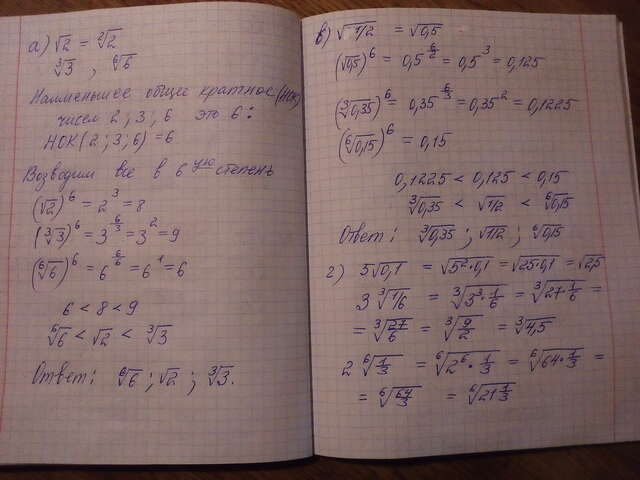 а) √2 = ²√2
³√3 , ⁶√6
Наименьшее общее кратное (НОК)
чисел 2 ; 3 ; 6 это 6 :
НОК(2 ; 3 ; 6) = 6
Возводим все в 6 ую степень
(√2)⁶ = 2³ = 8
(³√3)⁶ = 3^(6/3) = 3² = 9
(⁶√6)⁶ = 6^(6/6) = 6¹ = 6
6 < 8 < 9
⁶√6 < √2 < ³√3
Ответ: ⁶√6 ; √2 ; ³√3.
в) √1/2 = √0,5
(√0,5)⁶ = 0,5^(6/2) = 0,5³ = 0,125
(³√0,35)⁶ = 0,35^(6/3) = 0,35² = 0,1225
(⁶√0,15)⁶ = 0,15
0,1225 < 0,125 < 0,15
³√0,35 < √1/2 < ⁶√0,15
Ответ: ³√0,35 ; √1/2 ; ⁶√0,15
г) 5√0,1 = √5²·0,1 = √25·0,1 = √2,5
3 ³√1/6 = ³√3³·1/6 = ³√27·1/6 =
= ³√27/6 = ³√9/2 = ³√4,5
2 ⁶√1/3 = ⁶√2⁶·1/3 = ⁶√64·1/3 =
= ⁶√64/3 = ⁶√21 1/3